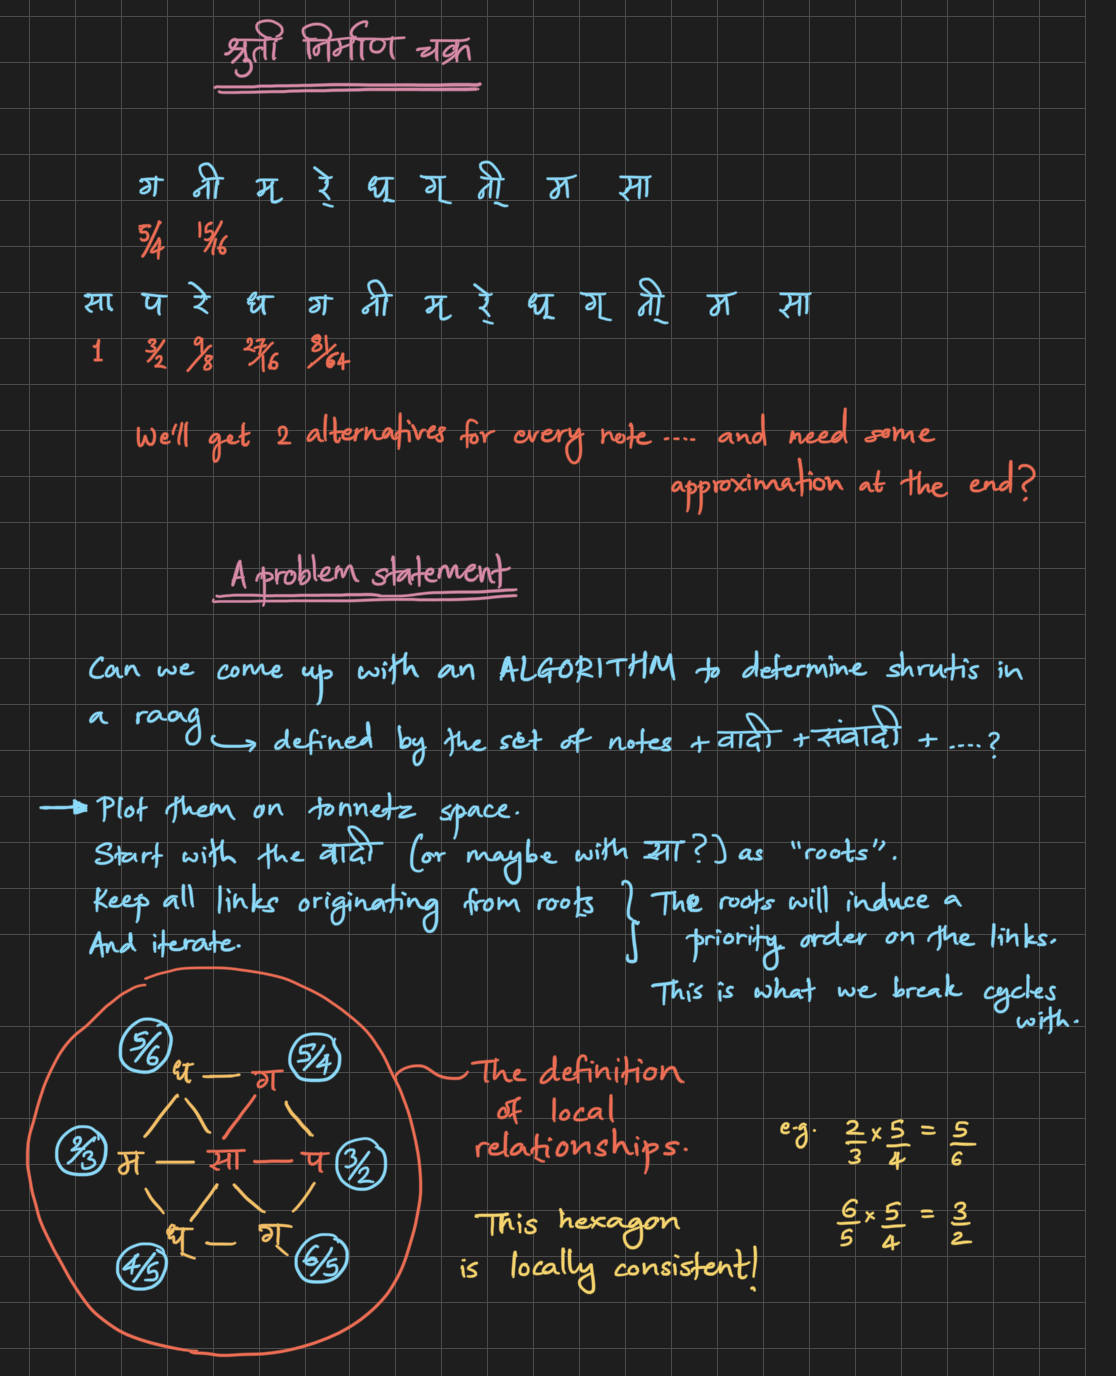 श्रुती निर्माण चक्र
ग नी म् रे् ध् ग् नी् म सा
5/4 15/16
सा प रे ध ग नी म् रे् ध् ग् नी् म सा
1 3/2 9/8 27/16 81/64
We'll get 2 alternatives for every note .... and need some
approximation at the end?
A problem statement
Can we come up with an ALGORITHM to determine shrutis in
a raag
↳ defined by the set of notes + वादी + संवादी + ....?
→ Plot them on tonnetz space.
Start with the वादी (or maybe with सा?) as "roots".
Keep all links originating from roots } The roots will induce a
And iterate. priority order on the links.
This is what we break cycles
with.
5/6 ध — ग 5/4
2/3 म — सा — प 3/2
4/5 ध् — ग् 6/5
The definition
of local
relationships.
e.g. 2/3 × 5/4 = 5/6
6/5 × 5/4 = 3/2
This hexagon
is locally consistent!